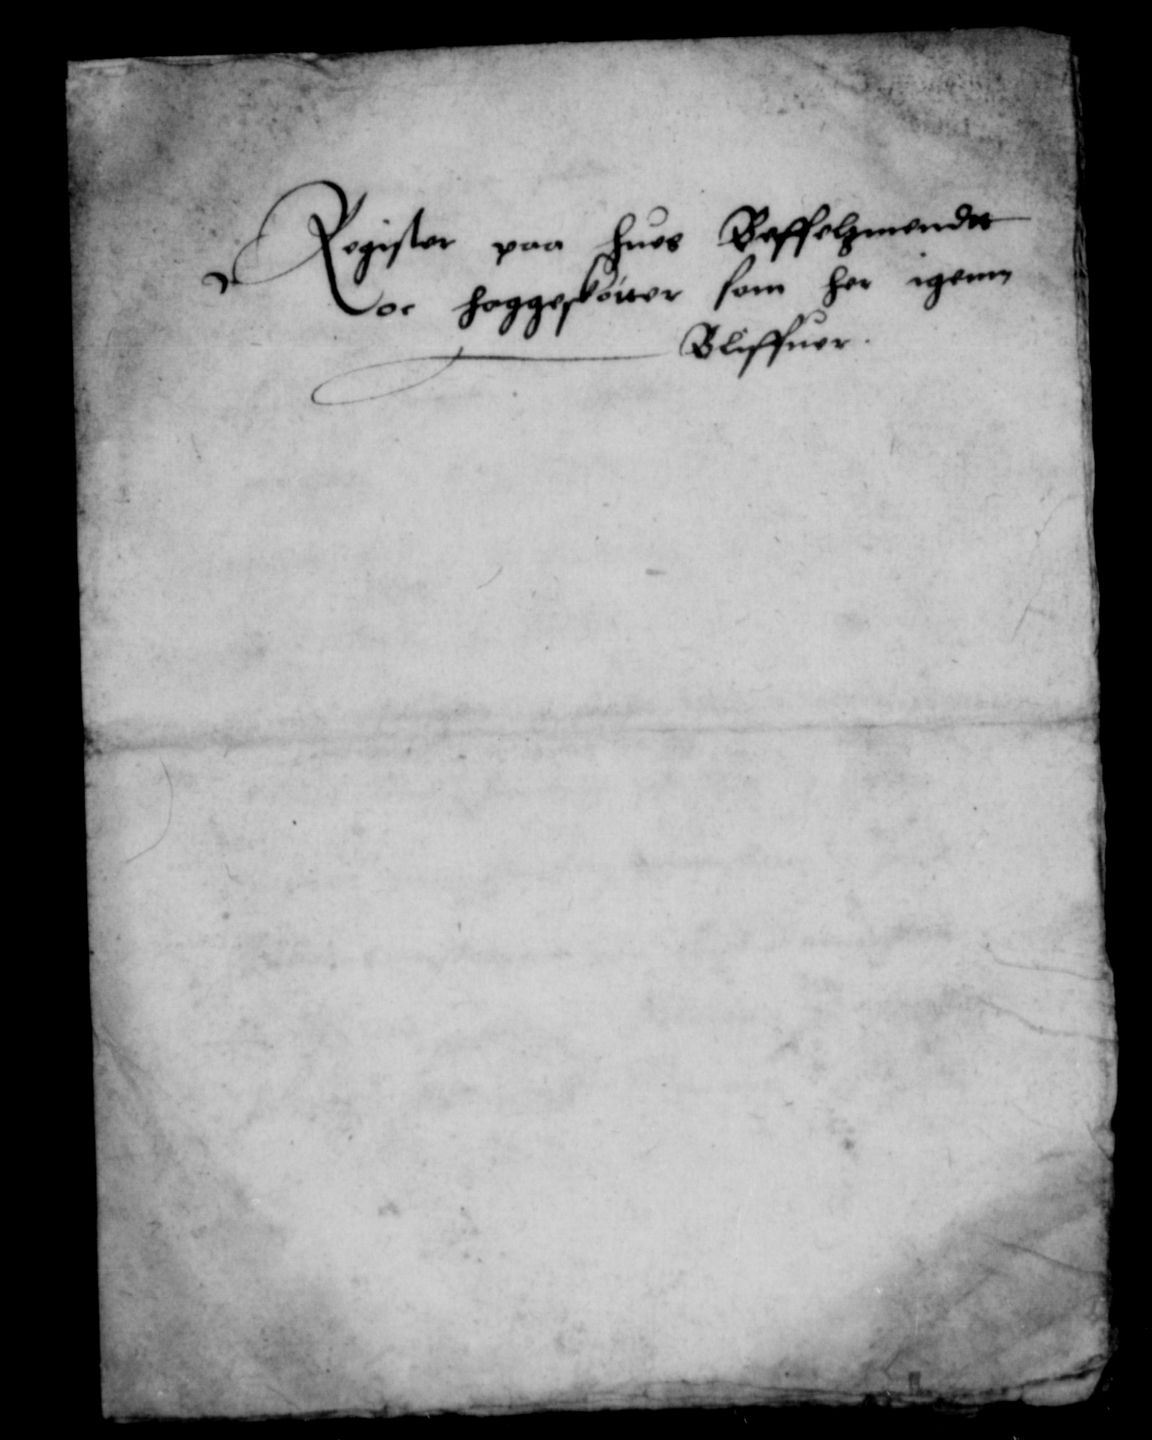 Register paa hues Beffelzmendt
oc haggeskötter som her igenn
Bliffuer.